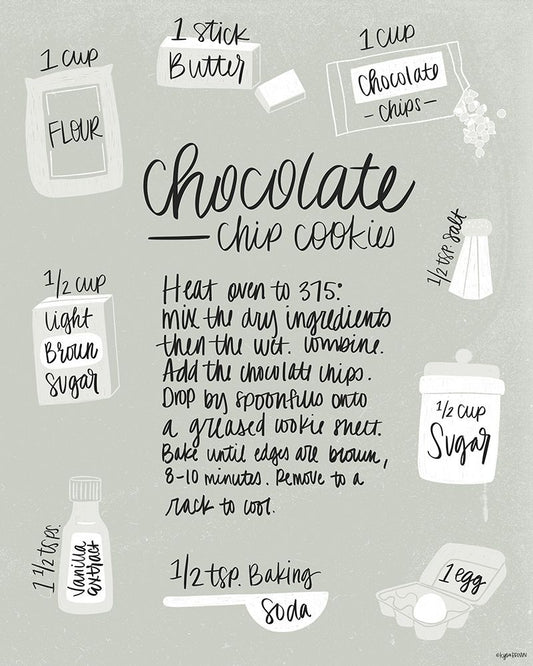 1 cup
FLOUR
1 stick
Butter
1 cup
Chocolate
-chips-
chocolate
chip cookies
1/2 tsp. salt
1/2 cup
Light
Brown
Sugar
Heat oven to 375°
mix the dry ingredients
then the wet. combine.
Add the chocolate chips.
Drop by spoonfuls onto
a greased cookie sheet.
Bake until edges are brown,
8-10 minutes. Remove to a
rack to cool.
1/2 cup
Sugar
1 1/2 tsps.
Vanilla
extract
1/2 tsp. Baking
Soda
1 egg